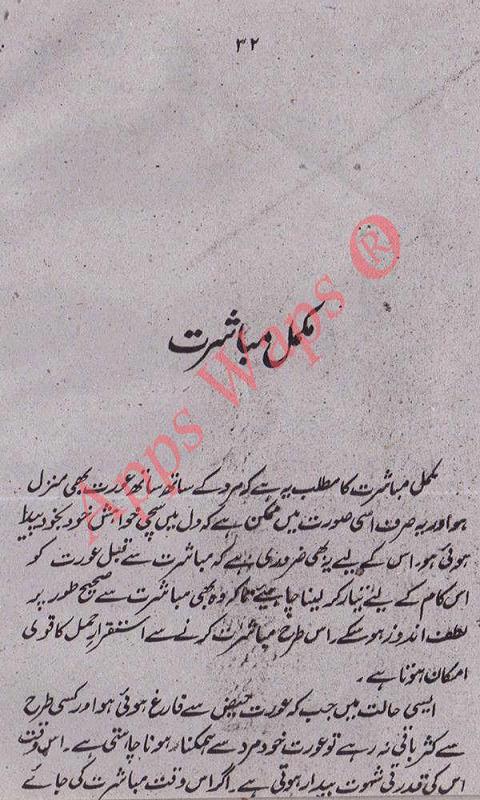 ۳۲
مکمل مباشرت
مکمل مباشرت کا مطلب یہ ہے کہ مرد کے ساتھ ساتھ عورت بھی منزل
ہو اور یہ صرف اسی صورت میں ممکن ہے کہ دل میں سچی خواہش خود بخود پیدا
ہوئی ہو۔ اس کے لیے یہ بھی ضروری ہے کہ مباشرت سے قبل عورت کو
اس کام کے لیئے تیار کر لینا چاہیے تاکہ وہ بھی مباشرت سے صحیح طور پر
لطف اندوز ہو سکے۔ اس طرح مباشرت کرنے سے استقرارِ حمل کا قوی
امکان ہوتا ہے۔
ایسی حالت میں جب کہ عورت حیض سے فارغ ہوئی ہو اور کسی طرح
سے کثر باقی نہ رہے تو عورت خود مرد سے ہمکنار ہونا چاہتی ہے۔ اس وقت
اس کی قدرتی شہوت بیدار ہوتی ہے۔ اگر اس وقت مباشرت کی جائے
Apps Waps ®